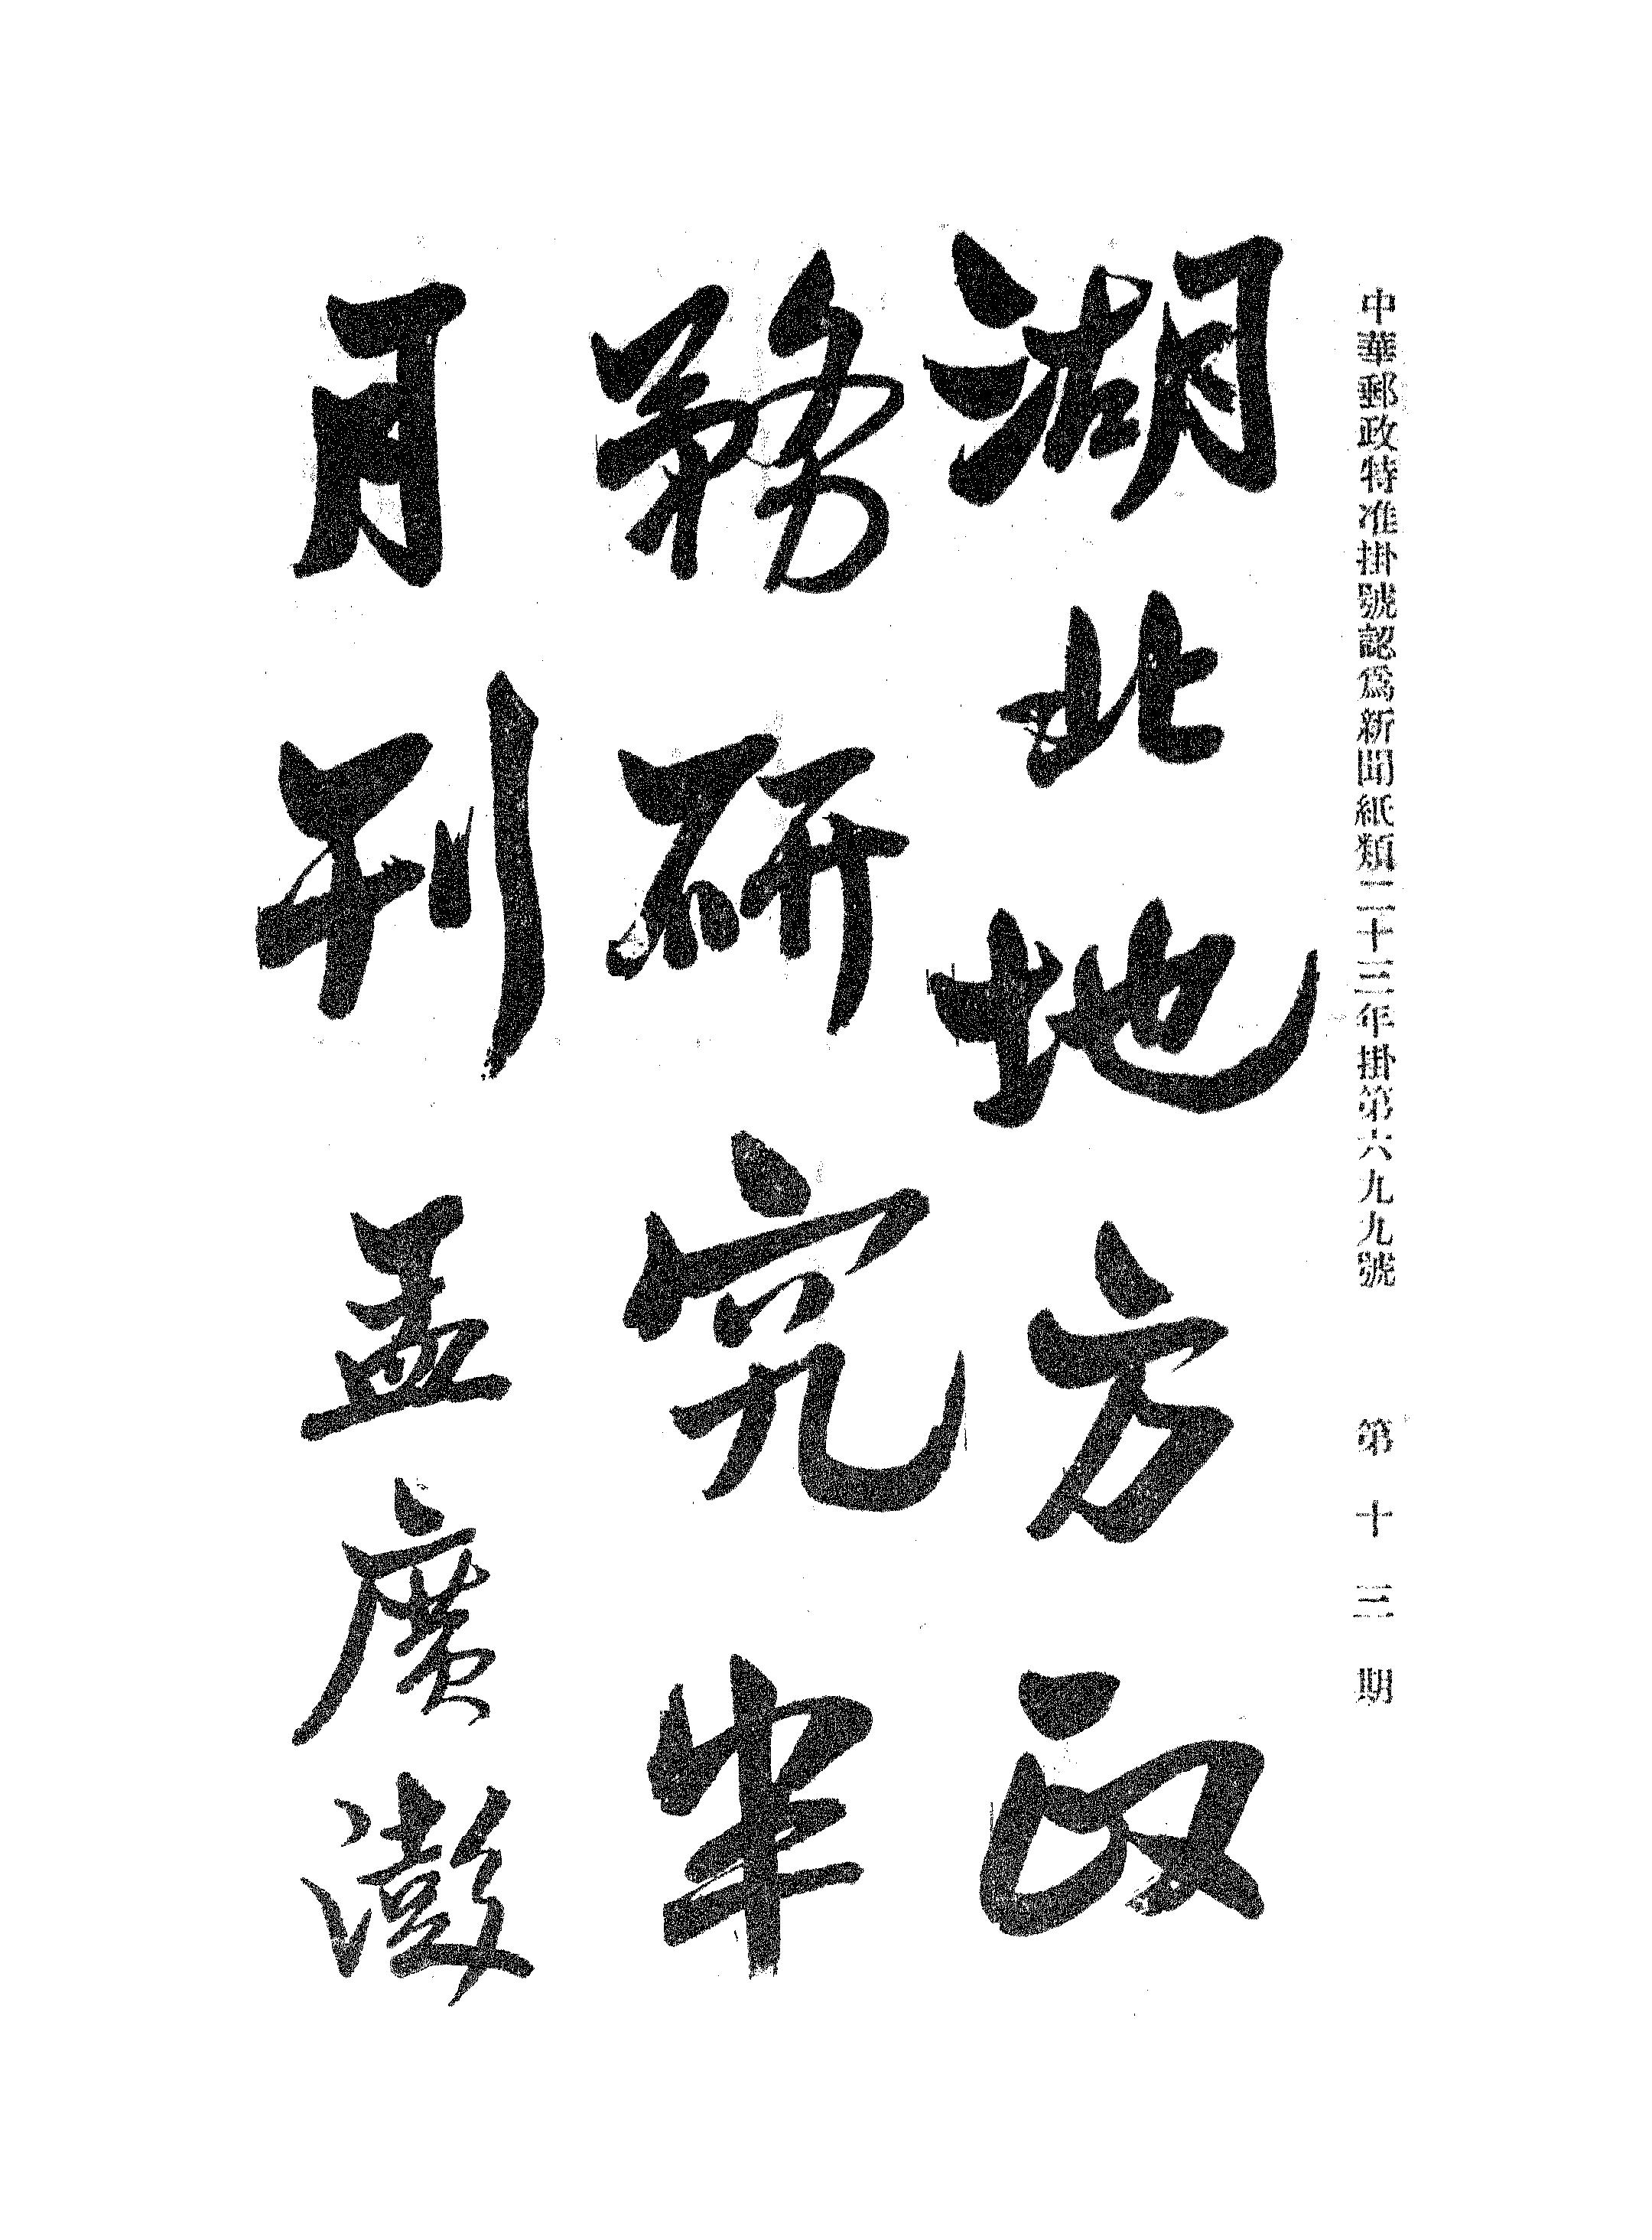 中華郵政特准掛號認爲新聞紙類二十三年掛第六九九號　第十三期
湖北地方政
務研究半
月刊 孟廣澎